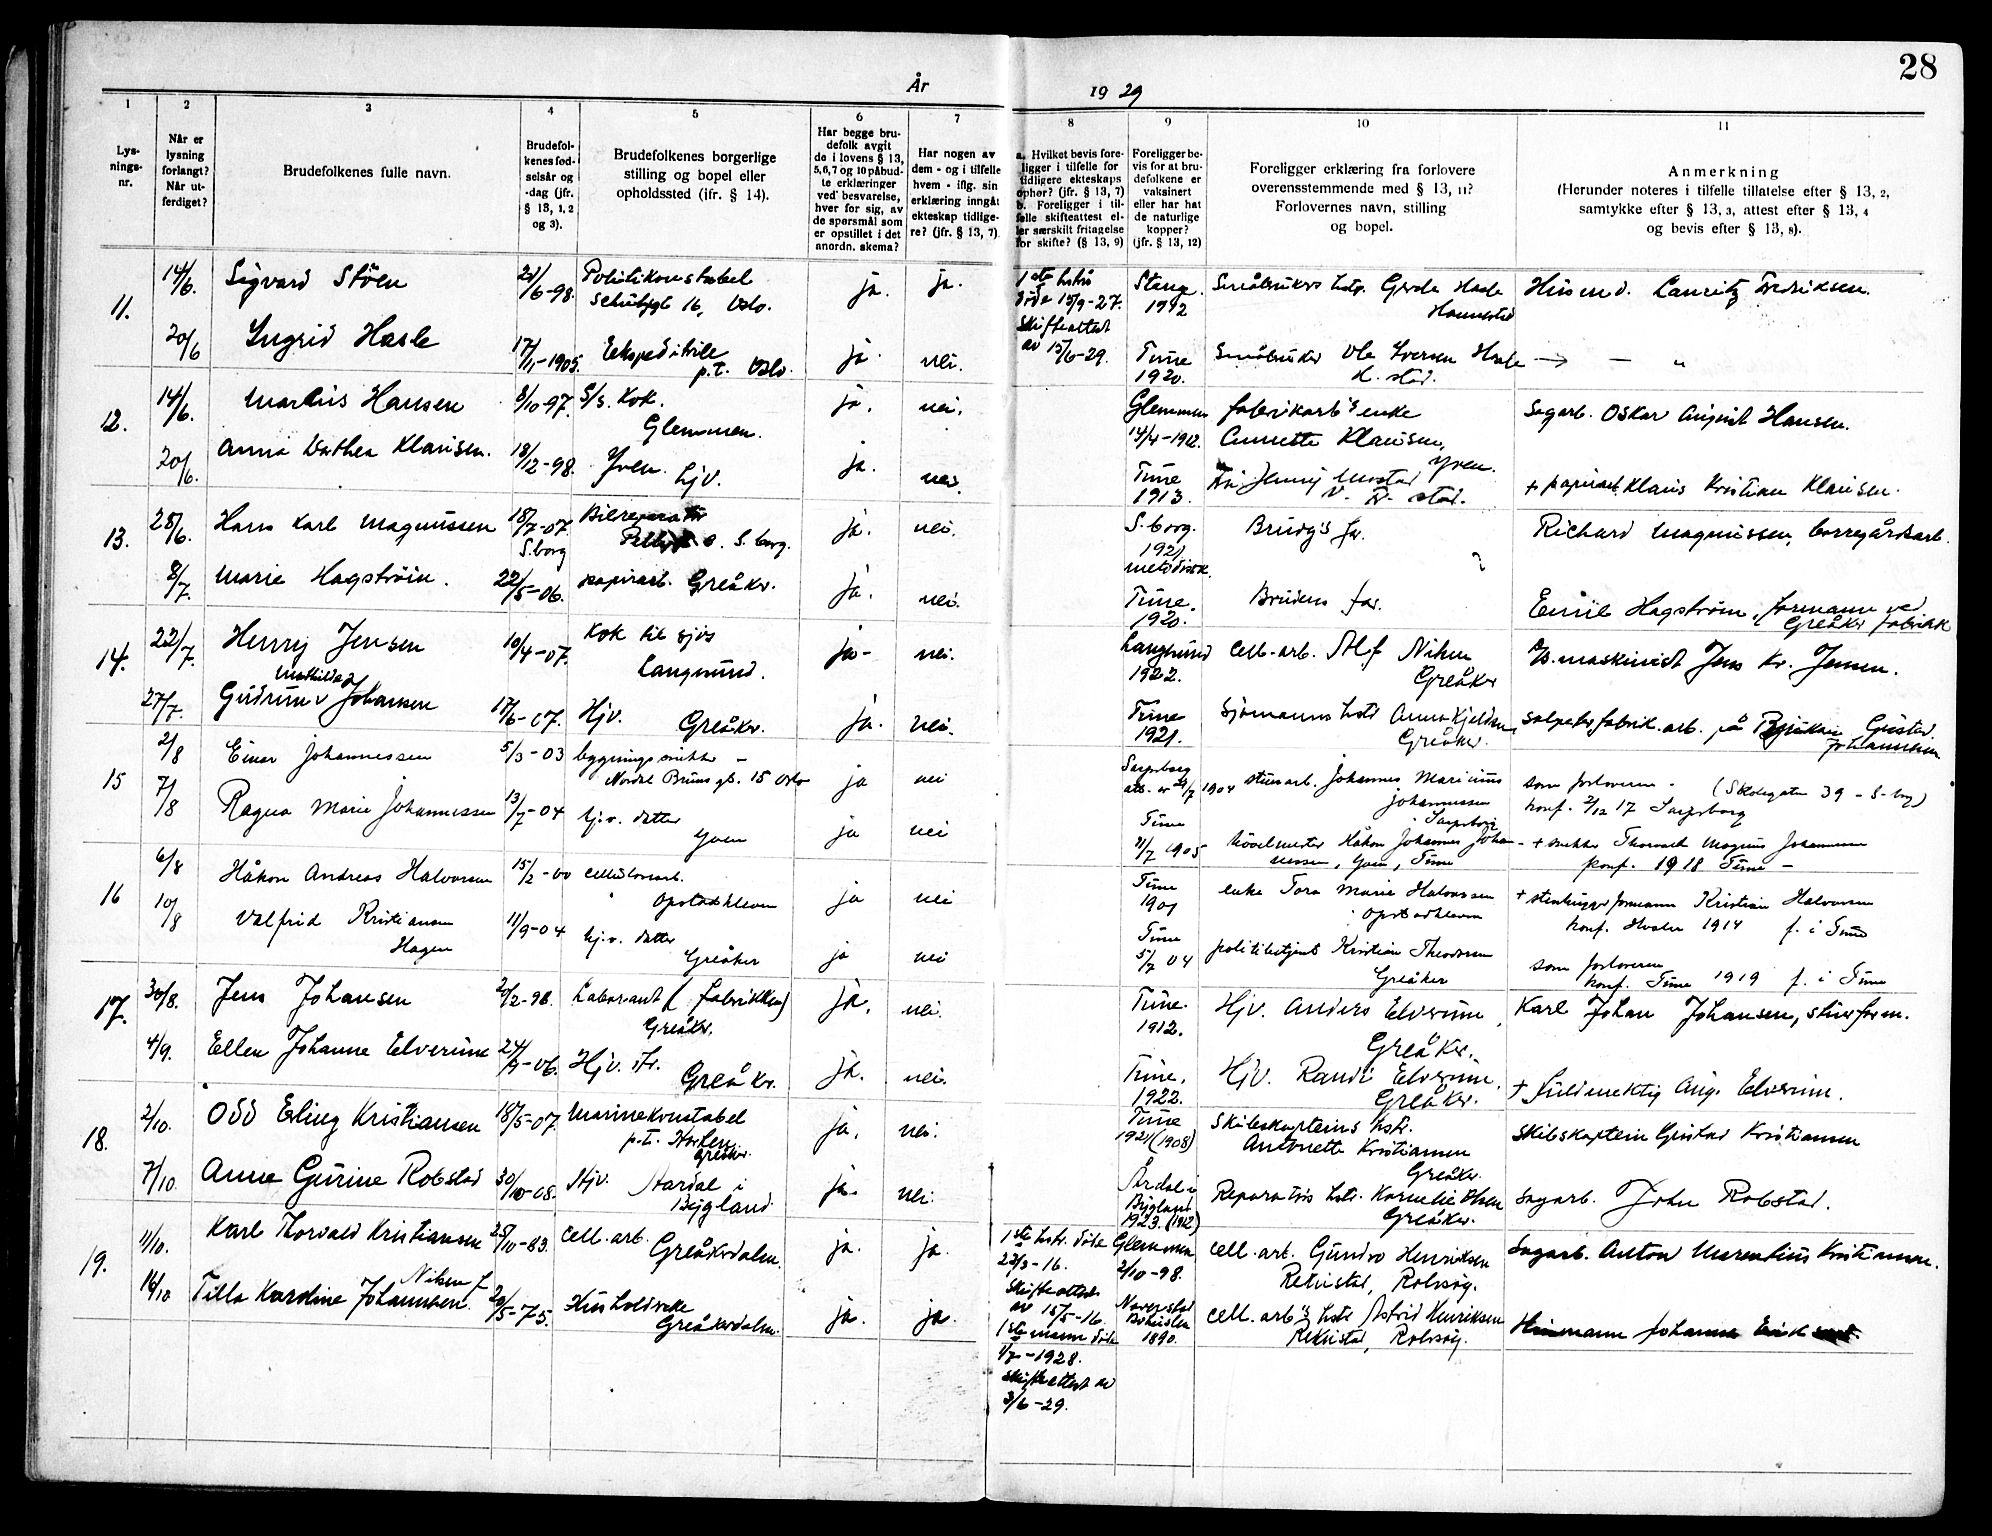 28
År 1929
1 2 3 4 5 6 7 8 9 10 11
Lys-
nings-
nr.
Når er
lysning
forlangt?
Når ut-
ferdiget?
Brudefolkenes fulle navn.
Brudefol-
kenes fød-
selsår og
-dag (jfr.
§ 13, 1, 2
og 3).
Brudefolkenes borgerlige
stilling og bopel eller
opholdssted (ifr. § 14).
Har begge bru-
defolk avgit
de i lovens § 13,
5,6,7 og 10 påbud-
te erklæringer
ved besvarelse,
hver for sig, av
de spørsmål som
er opstillet i det
anordn. skema?
Har nogen av
dem - og i tilfelle
hvem - iflg. sin
erklæring inngåt
ekteskap tidlige-
re? (jfr. § 13, 7)
a. Hvilket bevis fore-
ligger i tilfelle for
tidligere ekteskaps
ophør? (jfr. § 13, 7)
b. Foreligger i til-
felle skifteattest el-
ler særskilt fritagelse
for skifte? (§ 13, 9)
Foreligger be-
vis for at bru-
defolkene er
vaksinert
eller har hat
de naturlige
kopper?
(jfr. § 13, 12)
Foreligger erklæring fra forlovere
overensstemmende med § 13, 11?
Forlovernes navn, stilling
og bopel.
Anmerkning
(Herunder noteres i tilfelle tillatelse efter § 13, 2,
samtykke efter § 13, 3, attest efter § 13, 4
og bevis efter § 13, 8).
11.
14/6. Sigvard Stöen 21/6-98. Politikonstabel
Schübysgt 16, Oslo. ja. ja. 1ste hstr
döde 15/9-27.
Skifteattest
av 15/6-29. Stange
1912 Småbrukers hstr. Gerda Hasle
Hannestad Husmd. Lauritz Fredriksen.
20/6 Ingrid Hasle 17/11-1905. Ekspeditrise
p.t. Oslo. ja. nei. Tune
1920. Småbruker Ole Iversen Hasle
H. stad. → — "
12.
14/6. Marius Hansen 8/10-97. S/s. Kok.
Glemmen. ja. nei. Glemmen
14/4-1912. fabrikarb's enke
Annette Klausen,
Yven. Sagarb. Oskar August Hansen.
20/6. Anna Dorthea Klausen. 18/12-98. Yven. hjv. ja. nei. Tune
1913. Fru Jenny Mostad
V. Fr. stad. + papirarb. Klaus Kristian Klausen.
13.
25/6. Hans Karl Magnussen 18/7-07.
S.borg Bilreparatör
S. borg. ja. nei. S. borg.
1921
metodisk. Brudg's far. Richard Magnussen, borregårdsarb.
8/7. Marie Hagström. 22/5-06. papirarb. Greåker. ja. nei. Tune.
1920. Brudens far. Emil Hagström, formann ved
Greåker fabrikk
14.
22/7. Henry Jensen 10/4-07. Kok til sjös
Langesund. ja- nei. Langesund
1922. Cell.-arb. Alf Nilsen
Greåker D/S. maskinist Jens Kr. Jensen.
27/7. Gudrun Mathilda Johansen 17/6-07. Hjv. Greåker. ja. nei. Tune
1921. Sjömanns hstr Anna Kjeldsen,
Greåker. Salpeterfabrik.arb. på Rjukan Gustav
Johannesen
15
2/8 Einar Johannessen 5/3-03 bygningssnikker -
Nordal Bruns gt. 15 Oslo ja nei Sarpsborg
att. av 29/7 1904 stuearb. Johannes Marinius
Johannessen
i Sarpsborg som forloveren - (Skolegaten 39 - S-borg)
konf. 2/12 17 Sarpsborg
7/8 Ragna Marie Johannessen 13/7-04 hj.v. datter
Yven ja nei Tune
11/7 1905 hövelmester Håkon Johannes Johan-
nessen, Yven, Tune + snekker Thorvald Magnus Johannessen
konf. 1918 Tune -
16
6/8 Håkon Andreas Halvorsen 15/2-00 cellulosearb.
Opstadkleven ja nei Tune
1901 enke Tora Marie Halvorsen
Opstadkleven + stenhuggerformann Kristian Halvorsen
konf. Hvaler 1914 f. i Tune
10/8 Valfrid Kristiansen
Hagen 11/9-04 hj.v. datter
Greåker ja nei Tune
5/7 04 politibetjent Kristian Theodorsen
Greåker som forloveren
konf. Tune 1919 f. i Tune
17.
30/8. Jens Johansen 20/2-98. Laborant (fabrikken)
Greåker. ja. nei. Tune.
1912. Hjv. Anders Elverum,
Greåker. Karl Johan Johansen, stuerform.
4/9. Ellen Johanne Elverum 24/9-06. Hjv. str. Greåker. ja. nei. Tune.
1922. Hjv. Randi Elverum.
Greåker. + fuldmektig Aug. Elverum.
18.
2/10. Odd Erling Kristiansen 18/5-07. Marinekonstabel
p.t. Horten.
Greåker. ja. nei. Tune
1921 (1908) Skibskapteins hstr.
Antonette Kristiansen
Greåker. Skibskaptein Gustav Kristiansen
7/10. Anne Gurine Robstad 30/10-08. Hjv. Aardal i
Bygland. ja. nei. Årdal i
Bygland
1923. (1912) Reparatörs hstr. Kornelie Olsen
Greåker. Sagarb. John Robstad.
19.
11/10. Karl Thorvald Kristiansen 25/10-83. Cell.arb.
Greåkerdalen. ja. ja. 1ste hstr. döde
22/3-16.
Skifteattest
av 15/5-16. Glemmen
2/10-98. Cell. arb. Gundro Henriksen
Rekustad, Rolvsöy. Sagarb. Anton Marentius Kristiansen.
14/10 Tilla Karoline Johannesen. Nilsen f. 20/5-75. Husholderske
Greåkerdalen. ja. ja. 1ste mann döde
1/7-1928.
Skifteattest av
3/6-29. Naverstad
Bohuslen
1890. cell. arb's hstr Astrid Henriksen
Rekustad, Rolvsöy. Husmann Johannes